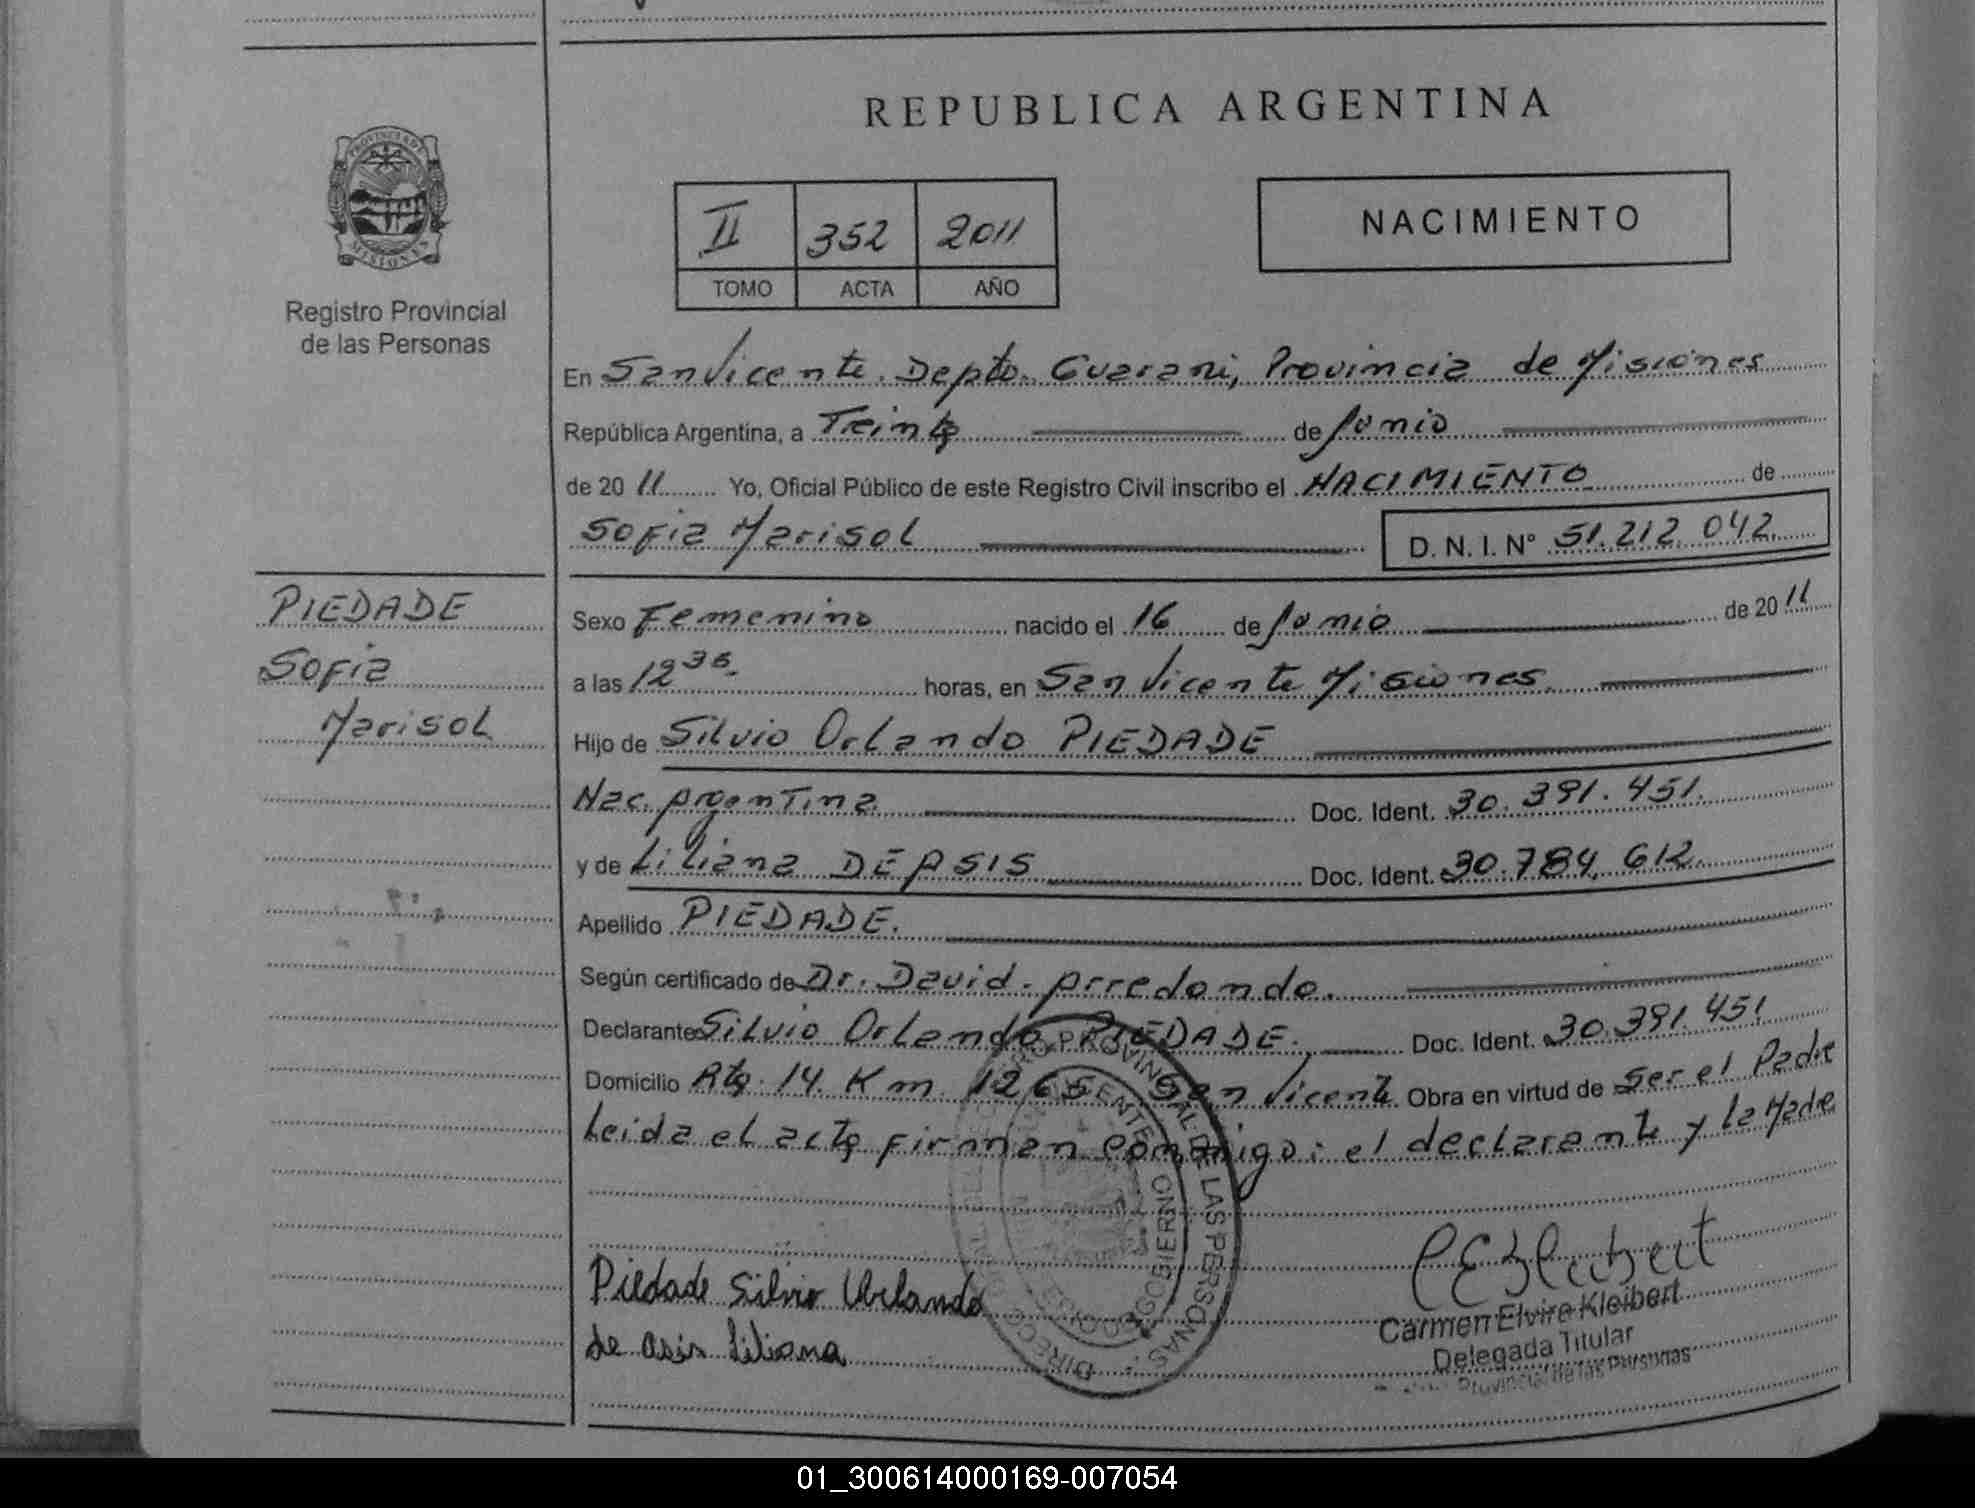 REPUBLICA ARGENTINA
PROVINCIA DE
MISIONES
Registro Provincial
de las Personas
II 352 2011
TOMO ACTA AÑO
NACIMIENTO
En San Vicente. Depto. Guarani, Provincia de Misiones
República Argentina, a Treinta de Junio
de 20 11 Yo, Oficial Público de este Registro Civil inscribo el NACIMIENTO de
Sofia Marisol D. N. I. N° 51.212.042.
PIEDADE
Sofia
Marisol
Sexo Femenino nacido el 16 de Junio de 20 11
a las 12 horas, en San Vicente Misiones.
Hijo de Silvio Orlando PIEDADE
Nac. Argentina Doc. Ident. 30.391.451.
y de Liliana DE ASIS Doc. Ident. 30.784.612.
Apellido PIEDADE.
Según certificado de Dr. David Arredondo.
Declarante Silvio Orlando PIEDADE. Doc. Ident. 30.391.451
Domicilio Rta. 14. Km. 1265 San Vicente Obra en virtud de ser el Padre
Leida el acta firman conmigo: el declarante y la Madre
Piedade Silvio Orlando
de asis Liliana
Carmen Elvira Kleibert
Delegada Titular
Provincial de las Personas
01_300614000169-007054